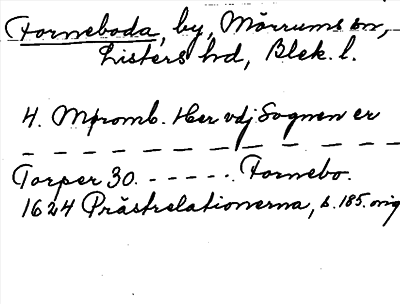 Forneboda, by, Mörrums sn,
Listers hd, Blek. l.
4. Mpromb. Her vdj Sognen er
— — — — — — — — — — — —
Torper 30. - - - - - . Fornebo.
1624 Prästrelationerna, s. 185. orig